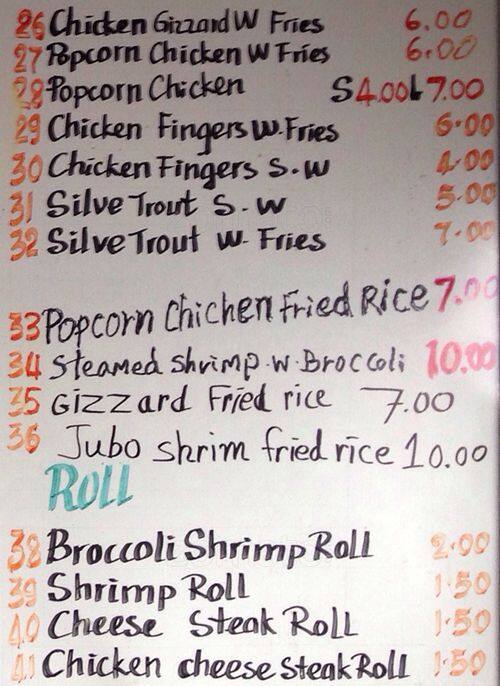 26 Chicken Gizzard W Fries 6.00
27 Popcorn Chicken W Fries 6.00
28 Popcorn Chicken S 4.00 L 7.00
29 Chicken Fingers W. Fries 6.00
30 Chicken Fingers S.W 4.00
31 Silve Trout S.W 5.00
32 Silve Trout W. Fries 7.00
33 Popcorn Chichen Fried Rice 7.00
34 Steamed Shrimp.W.Broccoli 10.00
35 Gizzard Fried rice 7.00
36 Jubo shrim fried rice 10.00
ROLL
38 Broccoli Shrimp Roll 2.00
39 Shrimp Roll 1.50
40 Cheese Steak Roll 1.50
41 Chicken cheese Steak Roll 1.50